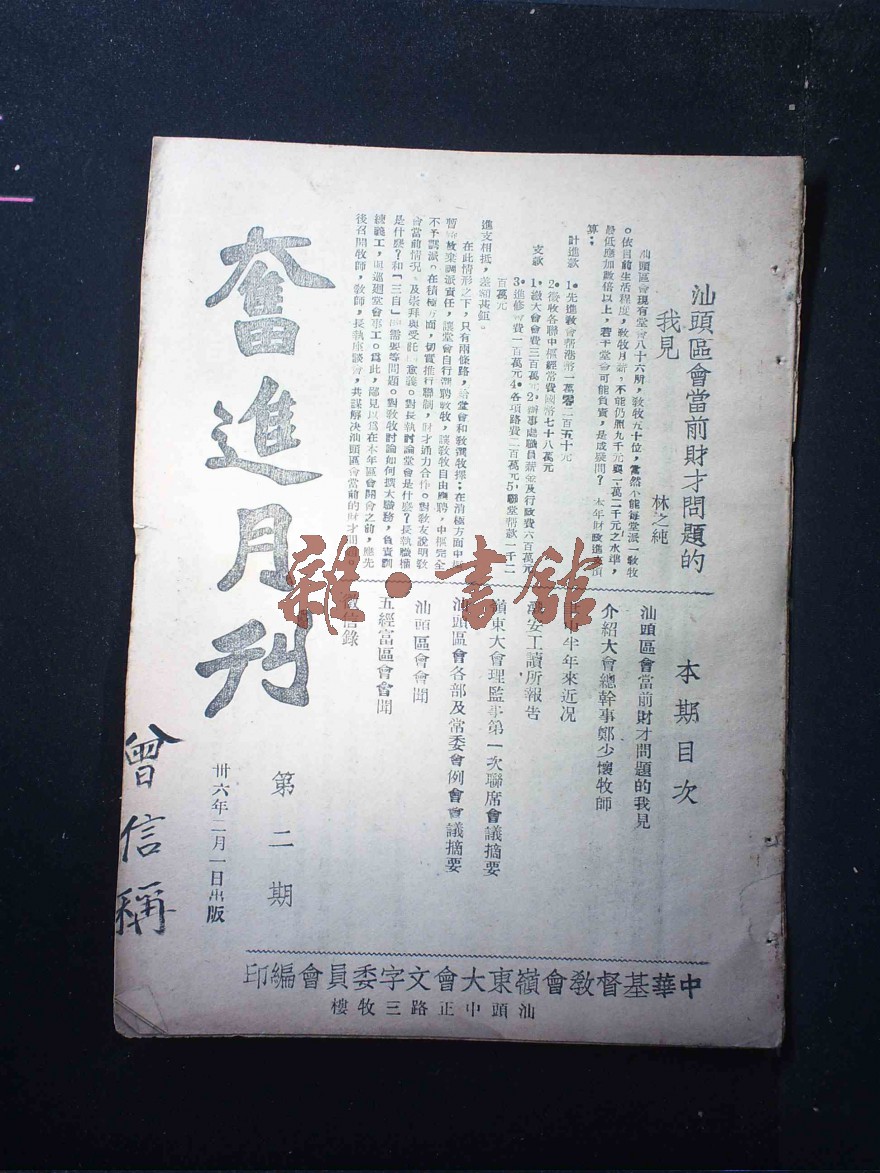 汕頭區會當前財才問題的
我見
林之純
汕頭區會現有堂會八十六所，敎牧九十位，當然不能每堂派一敎牧
。依目前生活程度，敎牧月薪，不能仍照九千元與一萬二千元之水準，
最低應加數倍以上，若干堂會可能負責，是成疑問？本年財政進支預
算：
計進款　1.先進敎會幫港幣一萬零二百五十元
2.徵收各聯中樞經常費國幣七十八萬元
支款　1.繳大會會費三百萬元　2.辦事處職員薪金及行政費六百萬元
3.進修會費一百萬元4.各項路費二百萬元5.聯堂帮款一千二
百萬元
進支相抵，差額甚鉅。
在此情形之下，只有兩條路，給堂會和敎牧選擇：在消極方面中樞
放棄調派責任，讓堂會自行選聘敎牧，讓敎牧自由應聘，中樞完全
不予調派。在積極方面，切實推行聯制，財才通力合作。對敎友說明敎
會當前情況，及崇拜與受託意義。對長執討論堂會是什麼？長執職權
是什麼？和「三自」需要等問題。對敎牧討論如何擴大職務，負責訓
練義工，巡迴堂會事工。爲此，鄙見以爲在本年區會開會之前，應先
後召開牧師，敎師，長執座談會，共謀解決汕頭區會當前的財才問題。
本期目次
汕頭區會當前財才問題的我見
介紹大會總幹事鄭少懷牧師
半年來近况
安工讀所報告
東大會理監事第一次聯席會議摘要
汕頭區會各部及常委會例會會議摘要
汕頭區會會聞
五經富區會會聞
信錄
奮進月刊
第二期
卅六年二月一日出版
曾信稱
中華基督敎會嶺東大會文字委員會編印
汕頭中正路三牧樓
雜·書館